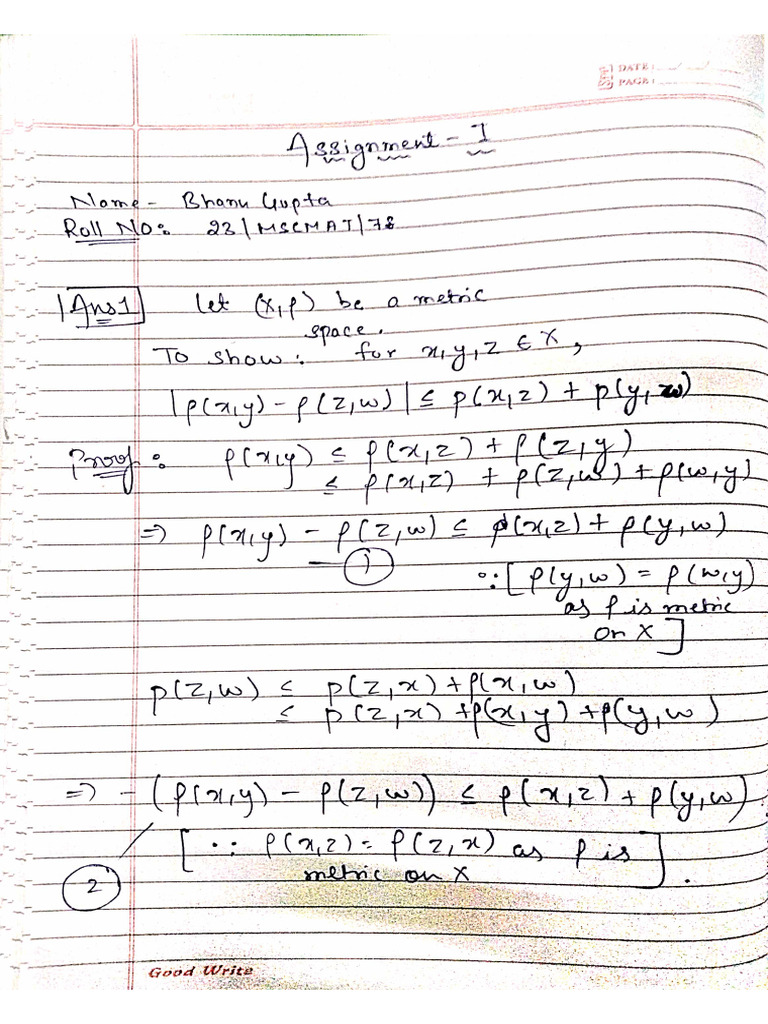 DATE:
PAGE:
Assignment - I
Name - Bhanu Gupta
Roll No: 23/MSCMAT/78
Ans1 Let (X,ρ) be a metric
space.
To show: for x,y,z ∈ X,
|ρ(x,y) - ρ(z,w)| ≤ ρ(x,z) + ρ(y,w)
Proof: ρ(x,y) ≤ ρ(x,z) + ρ(z,y)
≤ ρ(x,z) + ρ(z,w) + ρ(w,y)
=> ρ(x,y) - ρ(z,w) ≤ ρ(x,z) + ρ(y,w)
— 1
∵ [ρ(y,w) = ρ(w,y)
as ρ is metric
on X]
ρ(z,w) ≤ ρ(z,x) + ρ(x,w)
≤ ρ(z,x) + ρ(x,y) + ρ(y,w)
=> -(ρ(x,y) - ρ(z,w)) ≤ ρ(x,z) + ρ(y,w)
[∵ ρ(x,z) = ρ(z,x) as ρ is
metric on X].
2
Good Write